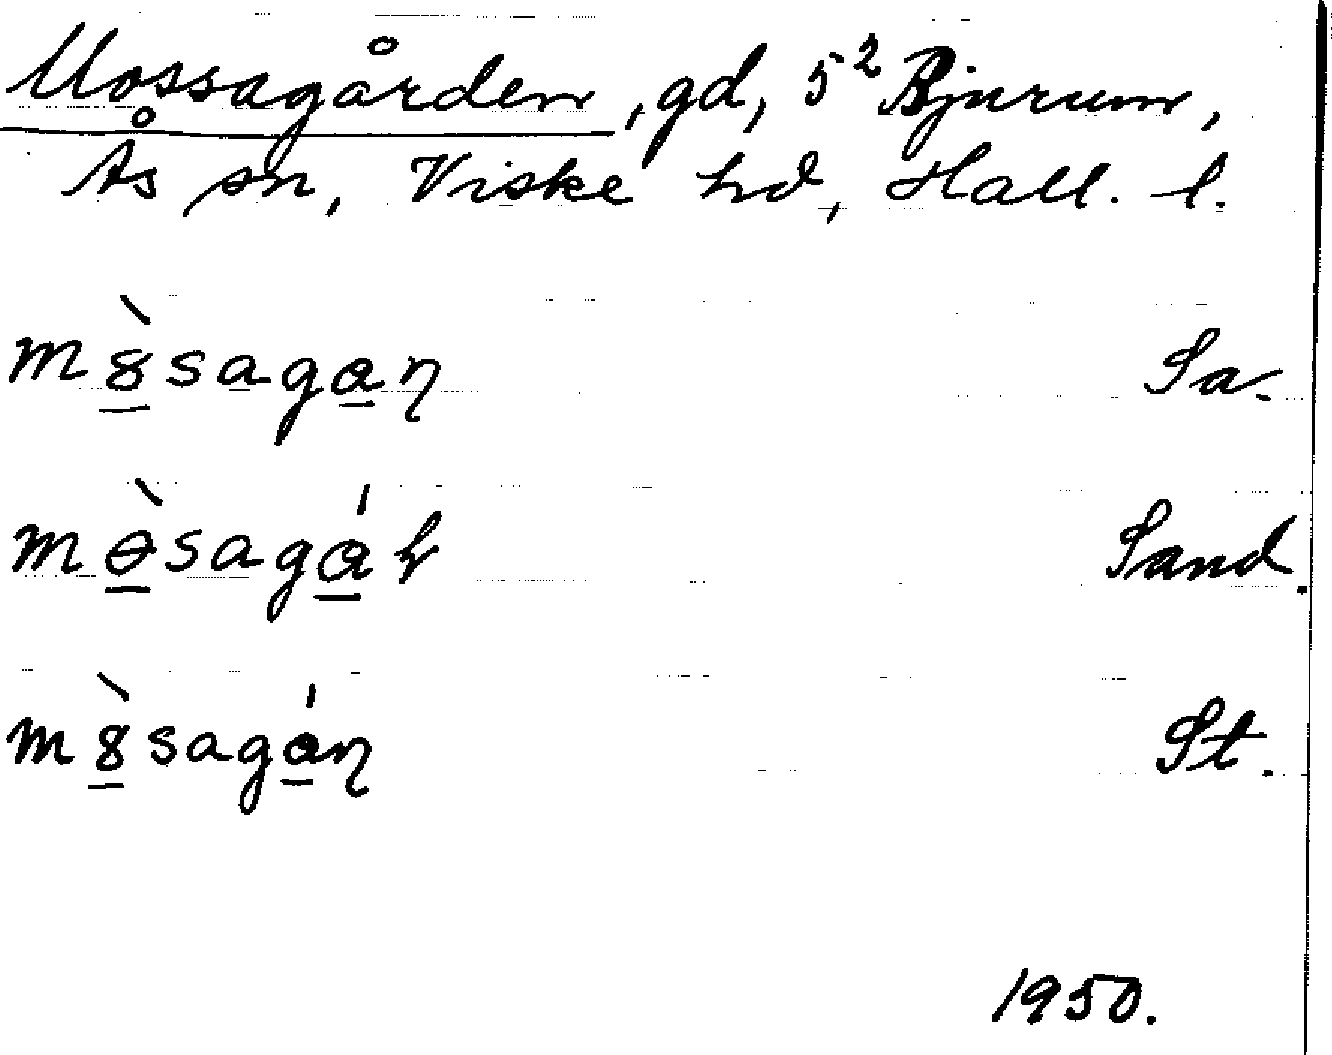 Mossagården, gd, 5² Bjurum,
Ås sn, Viske hd, Hall. l.
m8̠̀saga̠ɳ Sa.
mɵ̠̀sagá̠r Sand.
m8̠̀sagá̠ɳ St.
1950.